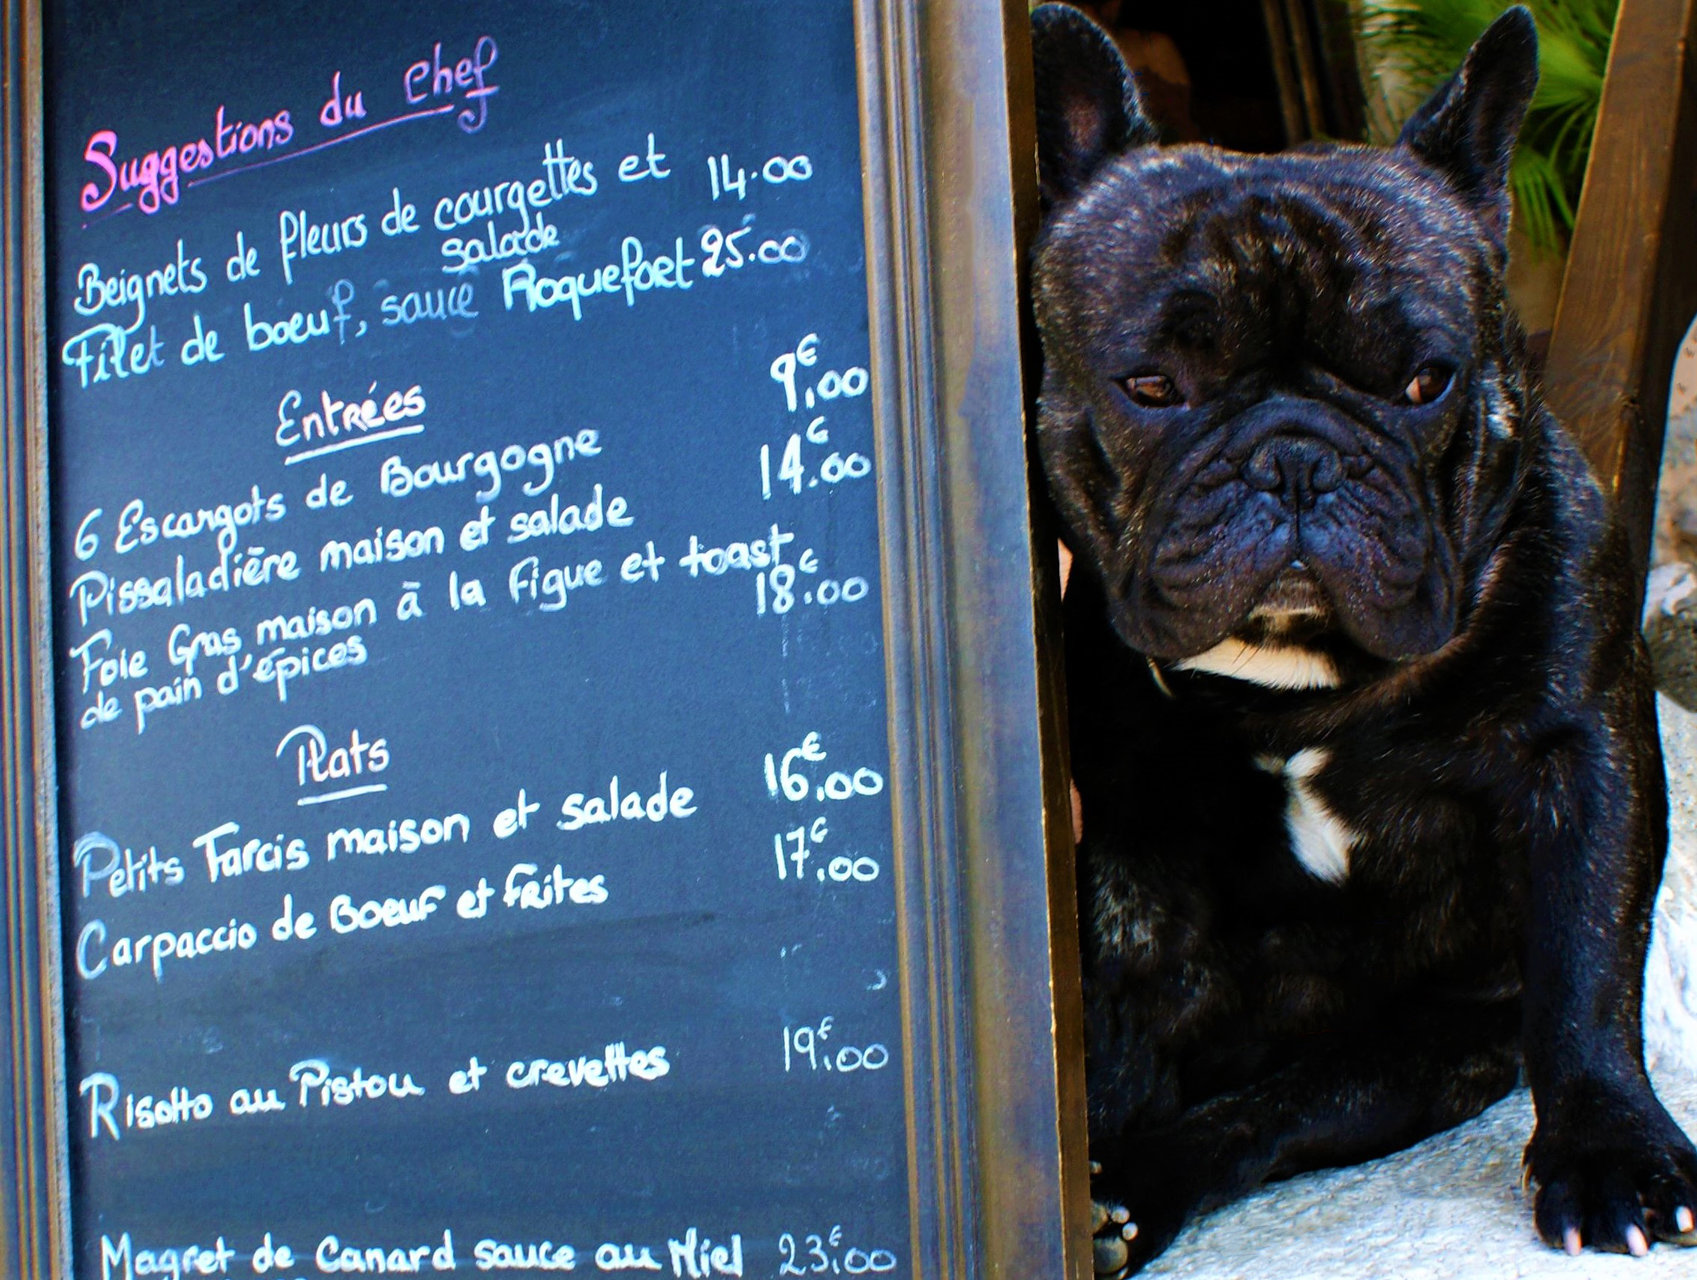 Suggestions du chef
Beignets de fleurs de courgettes et 14.00
salade
Filet de boeuf, sauce Roquefort 25.00
Entrées
6 Escargots de Bourgogne 9€.00
Pissaladière maison et salade 14€.00
Foie Gras maison à la figue et toast
de pain d'épices 18€.00
Plats
Petits Farcis maison et salade 16€.00
Carpaccio de Boeuf et frites 17€.00
Risotto au Pistou et crevettes 19€.00
Magret de Canard sauce au Miel 23€.00